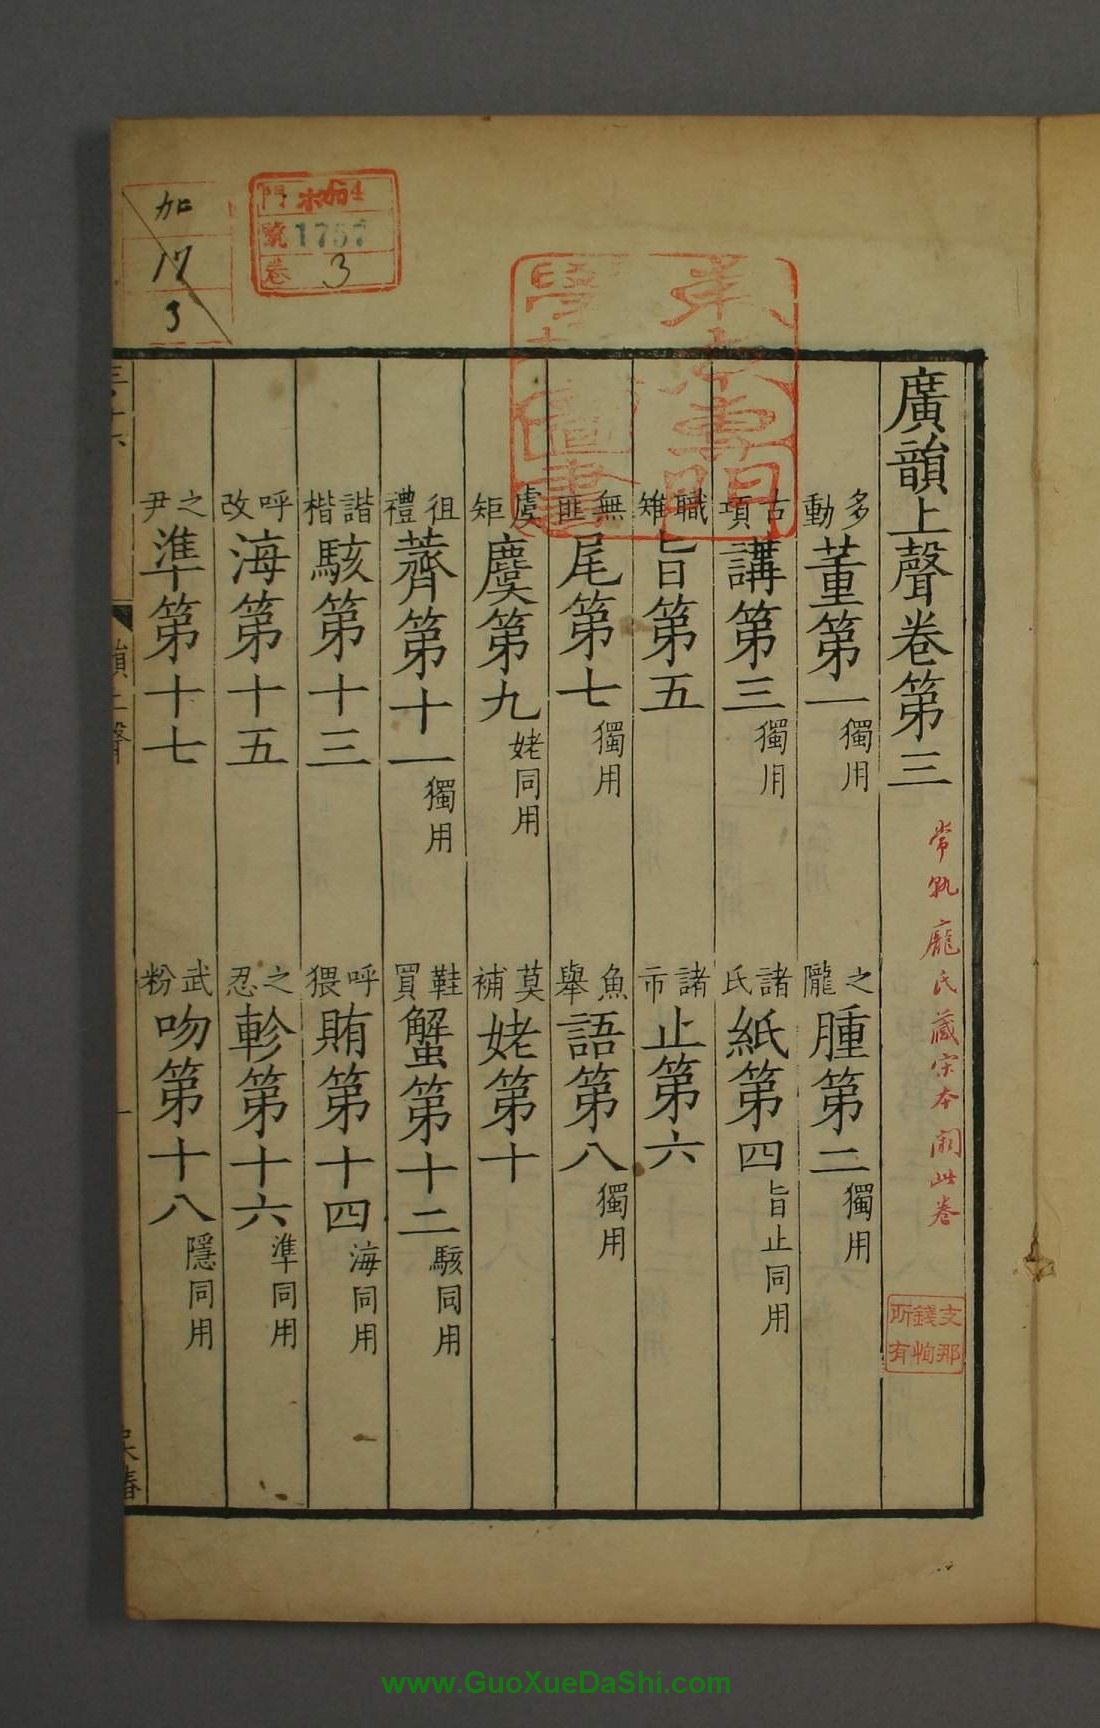 廣韻上聲卷第三
常熟龐氏藏宋本闕此卷
支那錢恂所有
多動董第一獨用
之隴腫第二獨用
古項講第三獨用
諸氏紙第四旨止同用
職雉旨第五
諸市止第六
無匪尾第七獨用
魚舉語第八獨用
虞矩麌第九姥同用
莫補姥第十
徂禮薺第十一獨用
鞋買蟹第十二駭同用
諧楷駭第十三
呼猥賄第十四海同用
呼改海第十五
之忍軫第十六準同用
之尹準第十七
武粉吻第十八隱同用
門
號1757
卷3
17
3
www.GuoXueDaShi.com